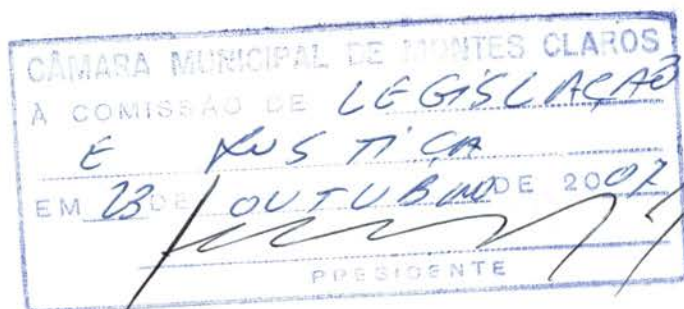 CÂMARA MUNICIPAL DE MONTES CLAROS
À COMISSÃO DE LEGISLAÇÃO
E JUSTIÇA
EM 23 DE OUTUBRO DE 2007
PRESIDENTE